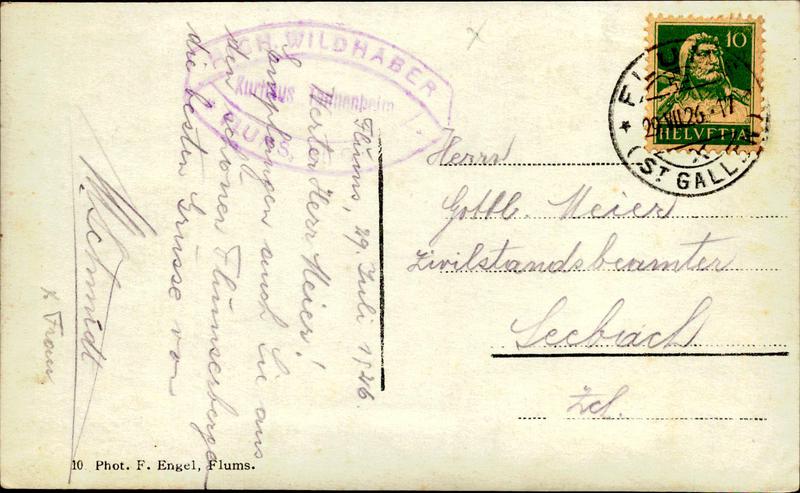 Flums, 29. Juli 1926.
Werter Herr Meier!
Empfangen auch Sie aus
den schönen Flumserbergen
die besten Grüsse von
W. Schmidt
& Frau
WILDHABER
Kurhaus Tannenheim
FLUMS
10
HELVETIA
FLUMS
29.VII.26.-17
(ST GALLEN)
Herrn
Gottl. Meier
Zivilstandsbeamter
Seebach
Zch.
10 Phot. F. Engel, Flums.